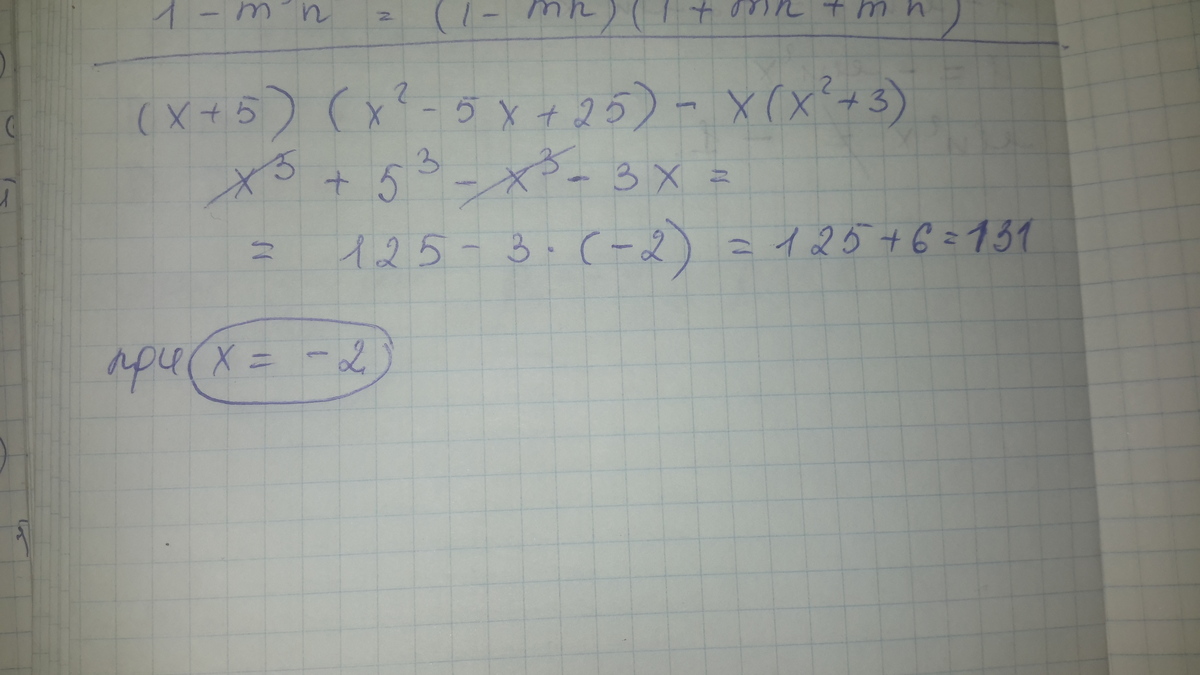 1 - m³n³ = (1 - mn)(1 + mn + m²n²)
(x+5) (x² - 5x + 25) - x(x² + 3)
x³ + 5³ - x³ - 3x =
= 125 - 3 · (-2) = 125 + 6 = 131
при x = -2